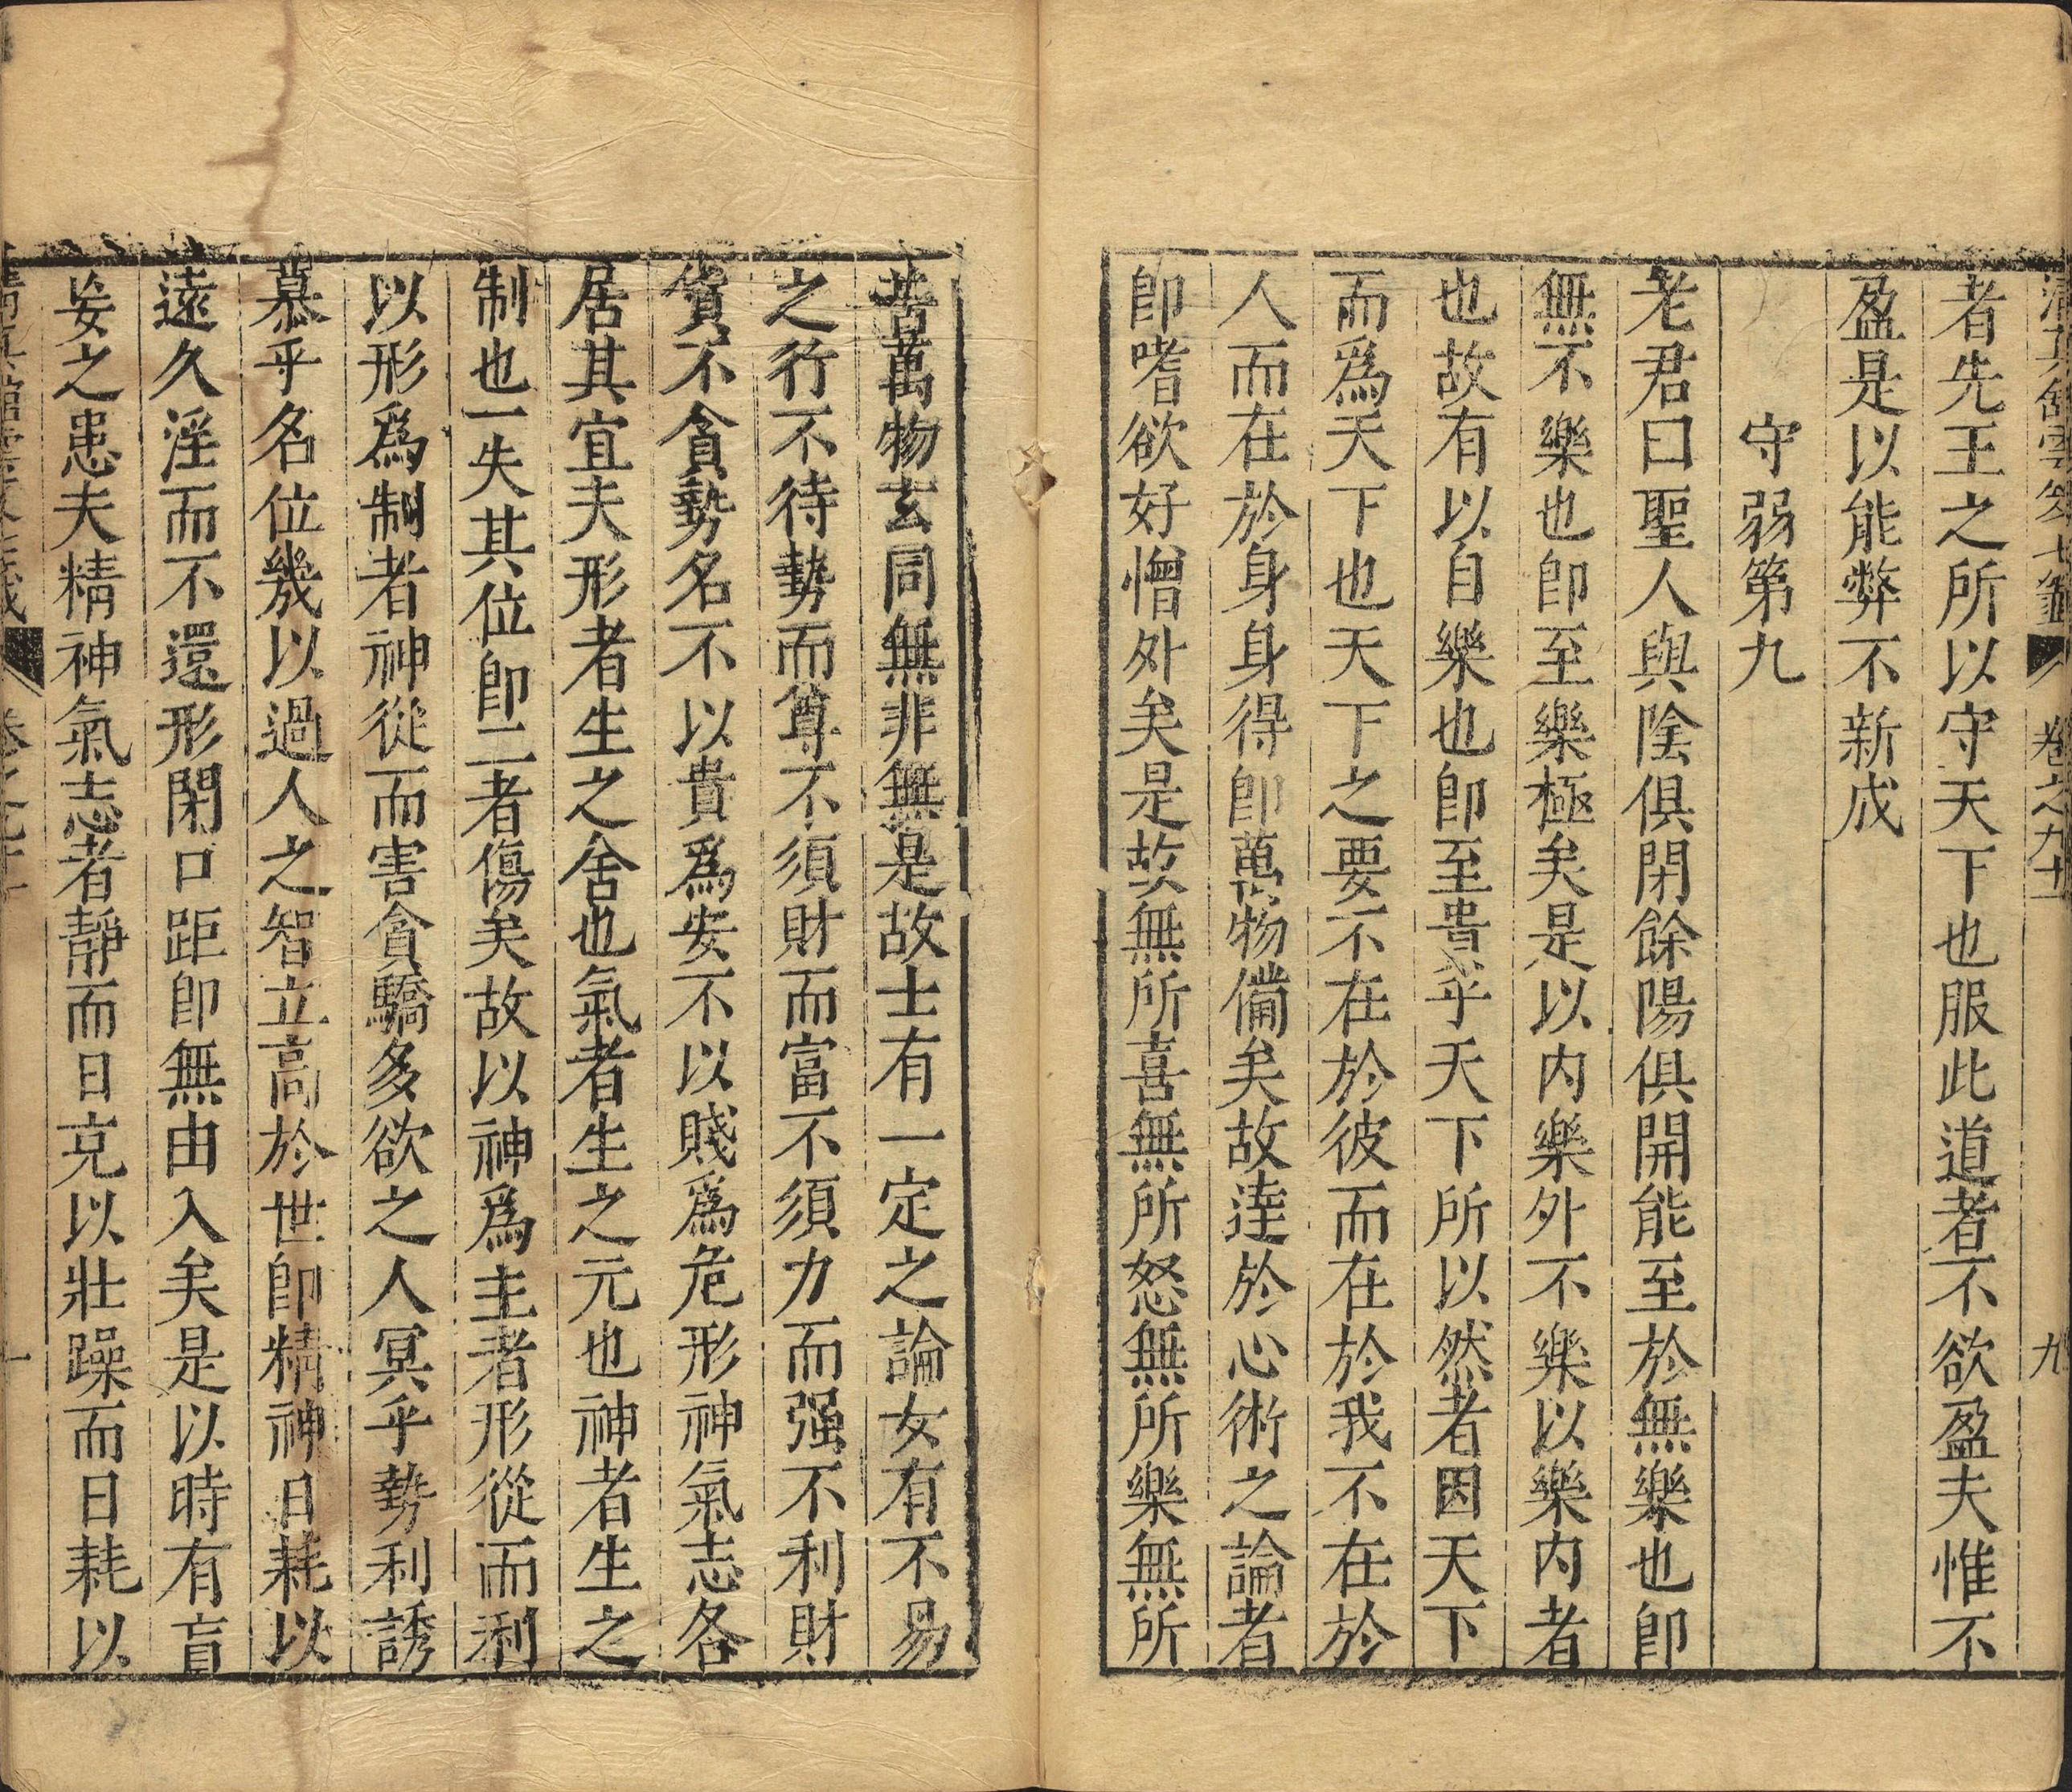 清真館雲笈七籤 卷之九十一 九
者先王之所以守天下也服此道者不欲盈夫惟不
盈是以能弊不新成
守弱第九
老君曰聖人與陰俱閉餘陽俱開能至於無樂也卽
無不樂也卽至樂極矣是以内樂外不樂以樂内者
也故有以自樂也卽至貴乎天下所以然者因天下
而爲天下也天下之要不在於彼而在於我不在於
人而在於身身得卽萬物備矣故逹於心術之論者
卽嗜欲好憎外矣是故無所喜無所怒無所樂無所
苦萬物玄同無非無是故士有一定之論女有不易
之行不待勢而尊不須財而富不須力而强不利財
貨不貪勢名不以貴爲安不以賤爲危形神氣志各
居其宜夫形者生之舍也氣者生之元也神者生之
制也一失其位卽二者傷矣故以神爲主者形從而利
以形爲制者神從而害貪驕多欲之人冥乎勢利誘
慕乎名位幾以過人之智立高於世卽精神日耗以
遠久淫而不還形閑口距卽無由入矣是以時有盲
妄之患夫精神氣志者靜而日充以壯躁而日耗以